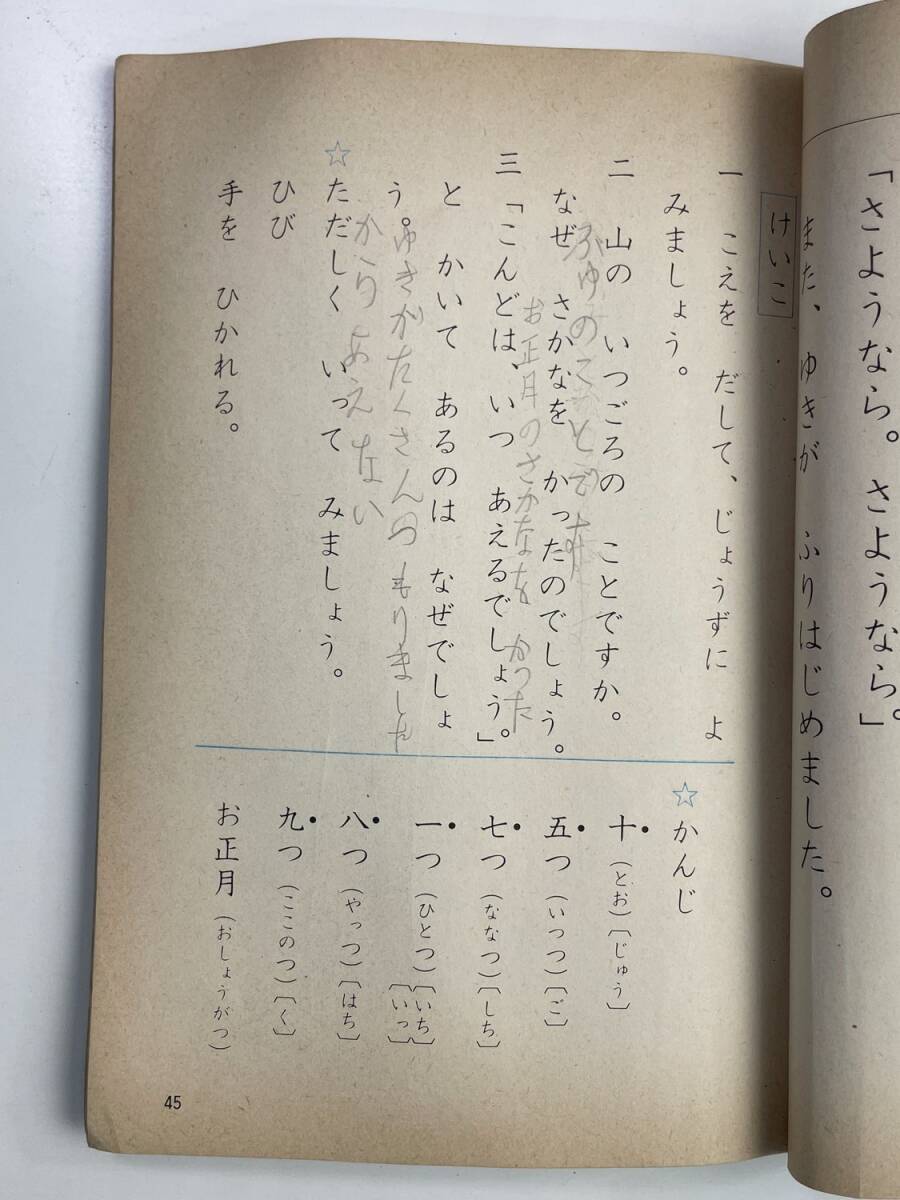 「さようなら。さようなら。」
また、ゆきが ふりはじめました。
けいこ
一 こえを だして、じょうずに よ
みましょう。
二 山の いつごろの ことですか。
ふゆのことです
なぜ さかなを かったのでしょう。
お正月のさかなを かった
三 「こんどは、いつ あえるでしょう。」
と かいて あるのは なぜでしょ
う。
ゆきがたくさんつもりました
からあえない
☆ただしく いって みましょう。
ひび
手を ひかれる。
☆かんじ
十（とお）〔じゅう〕
五つ（いつつ）〔ご〕
七つ（ななつ）〔しち〕
一つ（ひとつ）〔いち〕〔いっ〕
八つ（やっつ）〔はち〕
九つ（ここのつ）〔く〕
お正月（おしょうがつ）
45